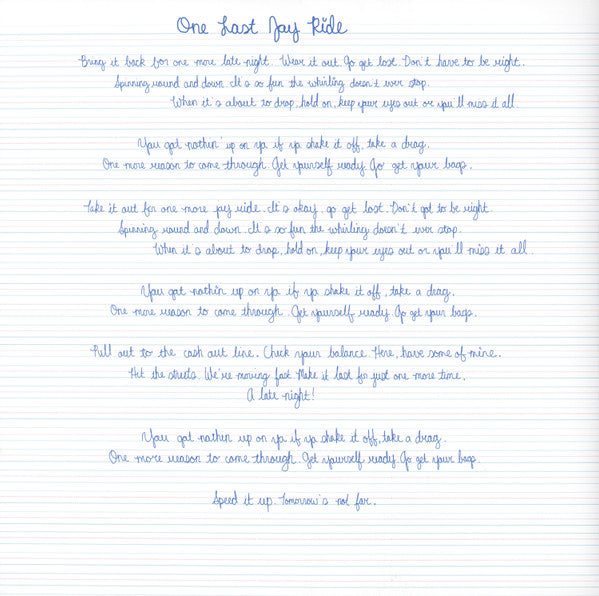 One Last Joy Ride
Bring it back for one more late night. Wear it out Go get lost. Don't have to be right.
Spinning round and down. It's so fun the whirling doesn't ever stop.
When it's about to drop, hold on, keep your eyes out or you'll miss it all.
You got nothin' up on ya if ya shake it off, take a drag.
One more reason to come through. Get yourself ready Go get your bags.
Take it out for one more joy ride. It's okay, go get lost. Don't got to be right.
Spinning round and down. It's so fun the whirling doesn't ever stop.
When it's about to drop, hold on, keep your eyes out or you'll miss it all.
You got nothin up on ya if ya shake it off, take a drag.
One more reason to come through. Get yourself ready Go get your bags.
Pull out to the cash out line. Check your balance. Here, have some of mine.
Hit the streets. We're moving fast Make it last for just one more time.
A late night!
You got nothin up on ya if ya shake it off, take a drag.
One more reason to come through. Get yourself ready Go get your bags.
Speed it up. Tomorrow's not far.